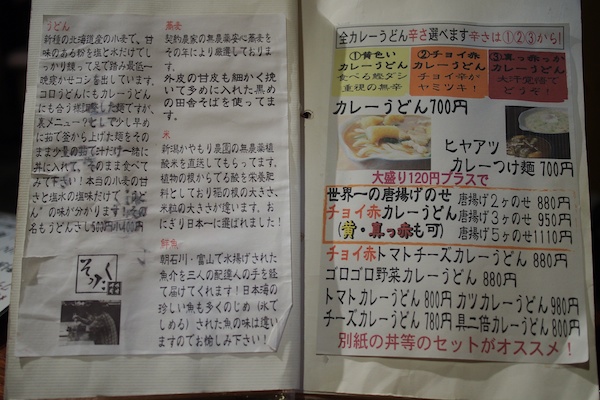 うどん
新種の北海道産の小麦で、甘
味のある粉を塩と水だけでし
っかり練って足で踏み最低一
晩寝かせコシを出しています。
コロうどんにもカレーうどん
にも合う様
裏メニュー?として少し早め
に茹で釜から上げた麺をその
まま少量の茹で汁だけ一緒に
丼に入れて、そのまま食べて
み下さい!本当の小麦の甘
さと塩水の塩味だけで
ん"の味が分かります!その
名もうどんさし
蕎麦
契約農家の無農薬安心蕎麦を
その年により厳選しておりま
す。
外皮の甘皮も細かく挽
いて多めに入れた黒め
の田舎そばを使ってま
す。
米
新潟かやもり農園の無農薬植
酸米を直送してもらってます。
植物の根からでる酸を栄養肥
料としており稲の根の大きさ、
米粒の大きさが違います。お
にぎり日本一に選ばれました!
鮮魚
朝石川・富山で水揚げされた
魚介を三人の配達人の手を経
て届けてくれます!日本海の
珍しい魚も多くのじめ(氷で
しめる)された魚の味は違い
ますのでお愉しみ下さい!
全カレーうどん辛さ選べます辛さは①②③から!
①黄色い
カレーうどん
食べる鰹ダシ
重視の無辛
②チョイ赤
カレーうどん
チョイ辛が
ヤミツキ!
③真っ赤っか
カレーうどん
大汗覚悟で
どうぞ!
カレーうどん700円
ヒヤアツ
カレーつけ麺 700円
大盛り120円プラスで
世界一の唐揚げのせ
チョイ赤カレーうどん
(黄・真っ赤も可)
唐揚げ2ヶのせ 880円
唐揚げ3ヶのせ 950円
唐揚げ5ヶのせ1110円
チョイ赤トマトチーズカレーうどん 880円
ゴロゴロ野菜カレーうどん 880円
トマトカレーうどん 800円 カツカレーうどん980円
チーズカレーうどん 780円 具二倍カレーうどん 800円
別紙の丼等のセットがオススメ!